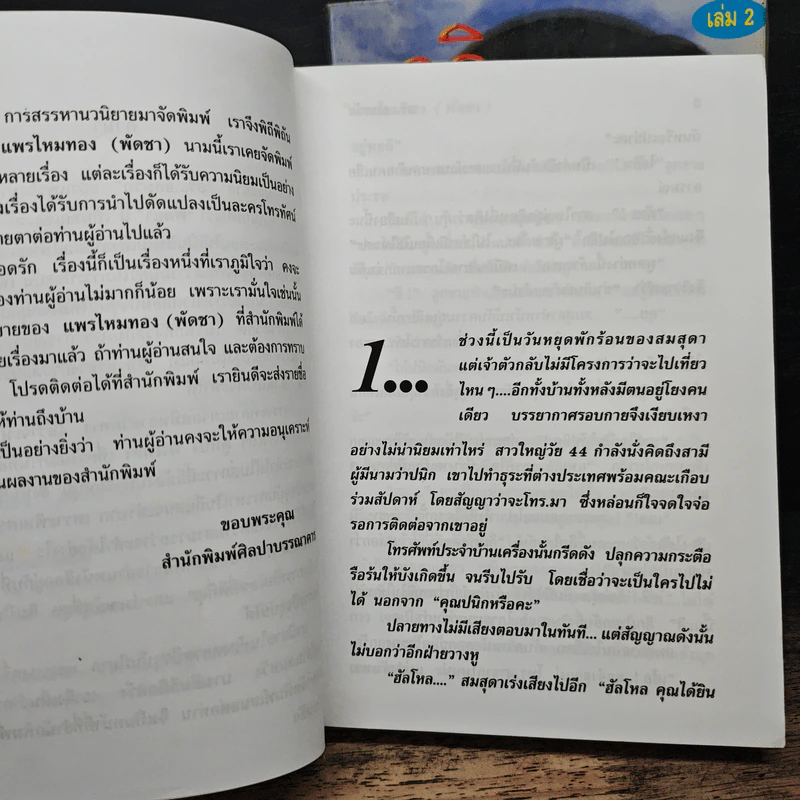 เล่ม 2
การสรรหานวนิยายมาจัดพิมพ์ เราจึงพิถีพิถัน
แพรไหมทอง (พัดชา) นามนี้เราเคยจัดพิมพ์
หลายเรื่อง แต่ละเรื่องก็ได้รับความนิยมเป็นอย่าง
งเรื่องได้รับการนำไปดัดแปลงเป็นละครโทรทัศน์
ายตาต่อท่านผู้อ่านไปแล้ว
อดรัก เรื่องนี้ก็เป็นเรื่องหนึ่งที่เราภูมิใจว่า คงจะ
องท่านผู้อ่านไม่มากก็น้อย เพราะเรามั่นใจเช่นนั้น
ยายของ แพรไหมทอง (พัดชา) ที่สำนักพิมพ์ได้
ยเรื่องมาแล้ว ถ้าท่านผู้อ่านสนใจ และต้องการทราบ
โปรดติดต่อได้ที่สำนักพิมพ์ เรายินดีจะส่งรายชื่อ
ห้ท่านถึงบ้าน
เป็นอย่างยิ่งว่า ท่านผู้อ่านคงจะให้ความอนุเคราะห์
นผลงานของสำนักพิมพ์
ขอบพระคุณ
สำนักพิมพ์ศิลปาบรรณาคาร
1...
ช่วงนี้เป็นวันหยุดพักร้อนของสมสุดา
แต่เจ้าตัวกลับไม่มีโครงการว่าจะไปเที่ยว
ไหน ๆ....อีกทั้งบ้านทั้งหลังมีตนอยู่โยงคน
เดียว บรรยากาศรอบกายจึงเงียบเหงา
อย่างไม่น่านิยมเท่าไหร่ สาวใหญ่วัย 44 กำลังนั่งคิดถึงสามี
ผู้มีนามว่าปนิก เขาไปทำธุระที่ต่างประเทศพร้อมคณะเกือบ
ร่วมสัปดาห์ โดยสัญญาว่าจะโทร.มา ซึ่งหล่อนก็ใจจดใจจ่อ
รอการติดต่อจากเขาอยู่
โทรศัพท์ประจำบ้านเครื่องนั้นกรีดดัง ปลุกความกระตือ
รือร้นให้บังเกิดขึ้น จนรีบไปรับ โดยเชื่อว่าจะเป็นใครไปไม่
ได้ นอกจาก “คุณปนิกหรือคะ”
ปลายทางไม่มีเสียงตอบมาในทันที... แต่สัญญาณดังนั้น
ไม่บอกว่าอีกฝ่ายวางหู
“ฮัลโหล....” สมสุดาเร่งเสียงไปอีก “ฮัลโหล คุณได้ยิน